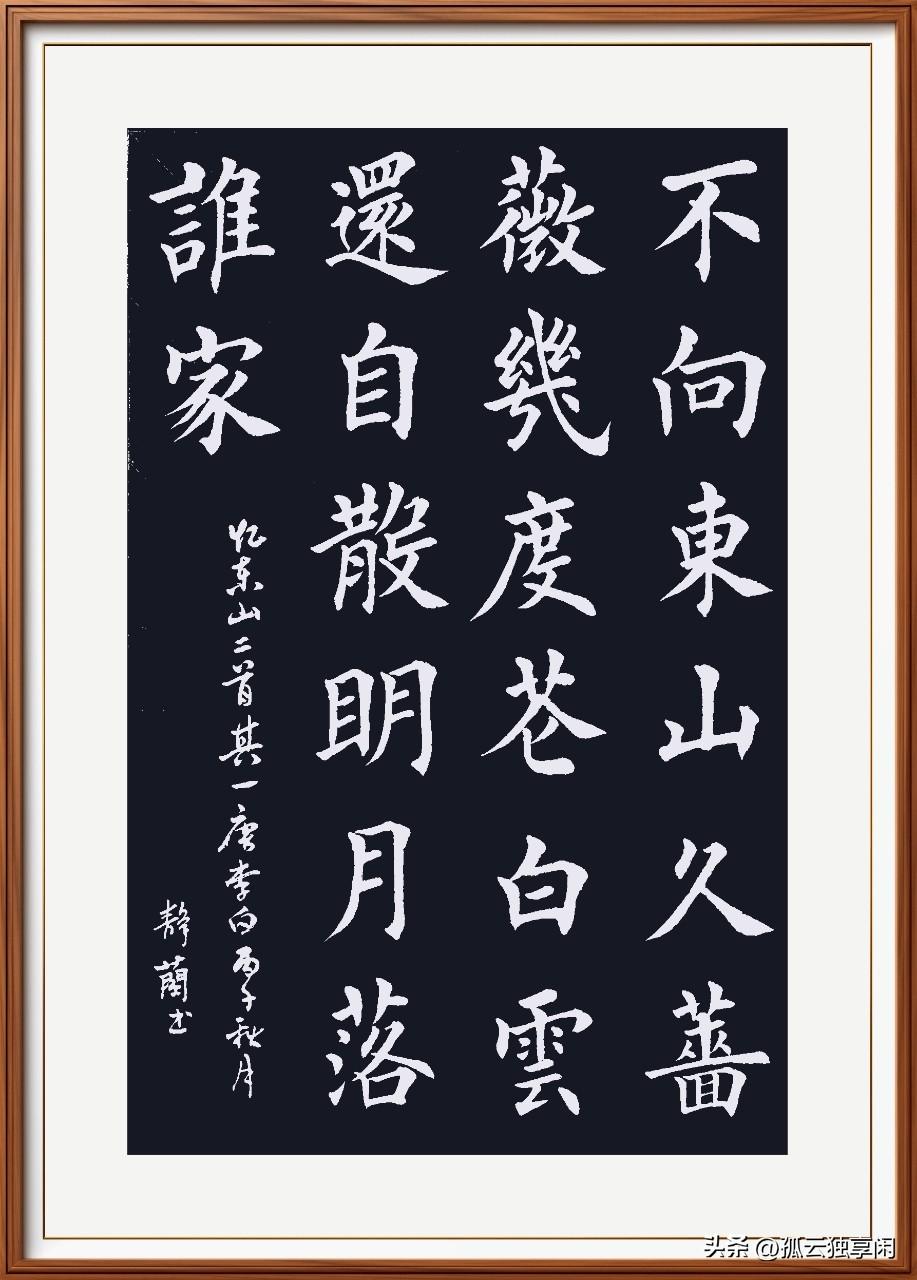 不向東山久薔
薇幾度花白雲
還自散眀月落
誰家
忆东山二首其一唐李白丙子秋月
靜蘭书
头条 @孤云独享闲